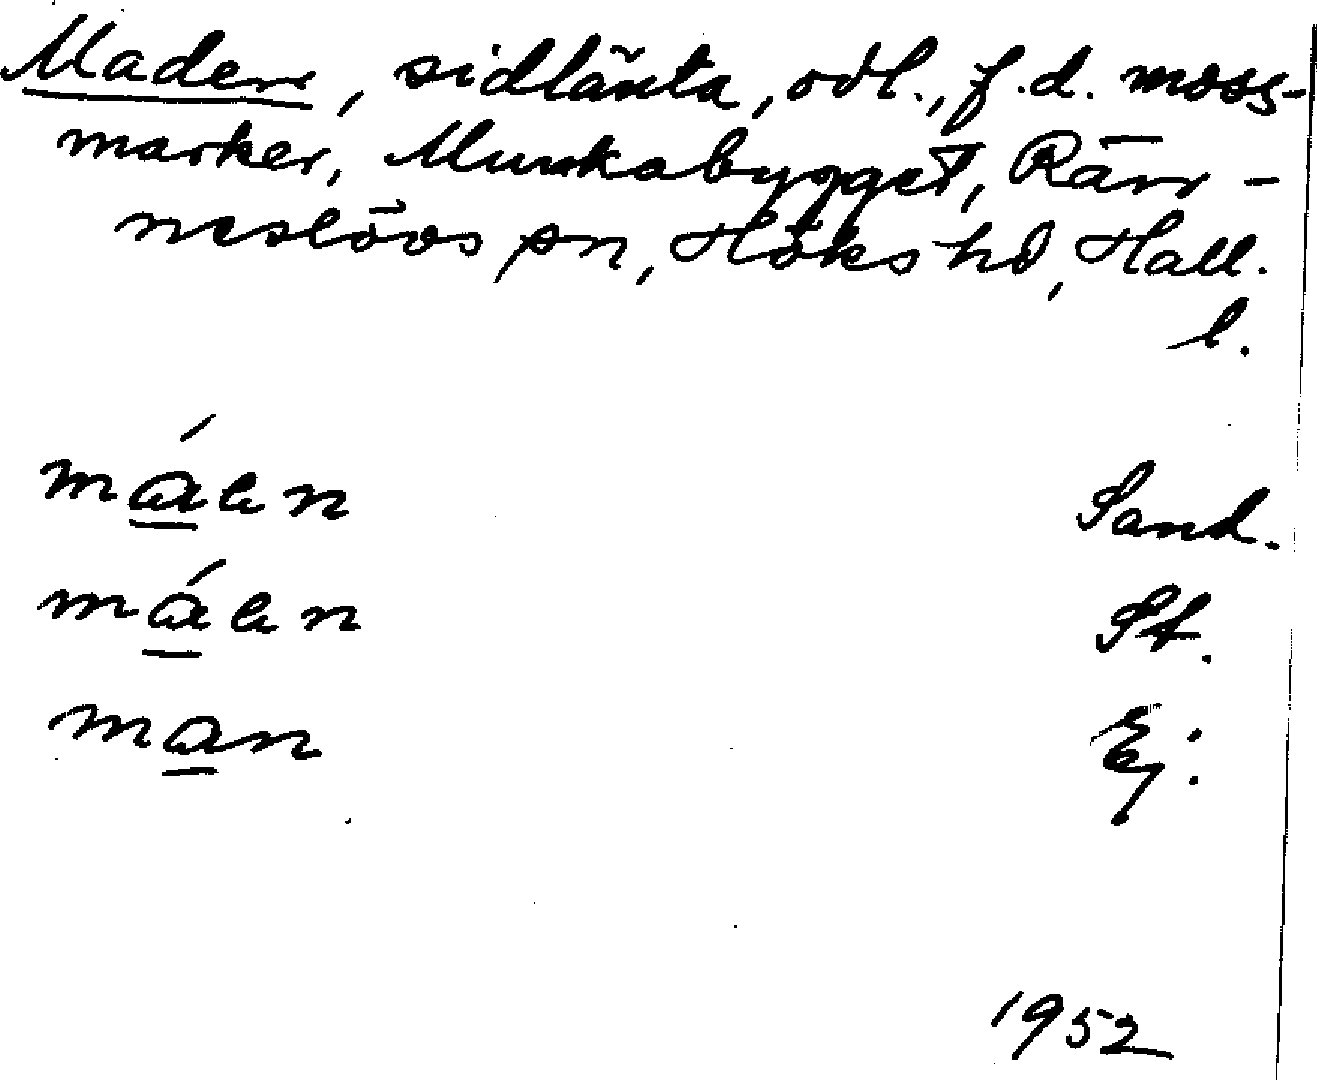 Maden, sidlänta, odl., f.d. moss-
marker, Munkabygget, Ränn-
neslövs sn, Höks hd, Hall.
l.
máen Sand.
máen St.
man Ej:
1952